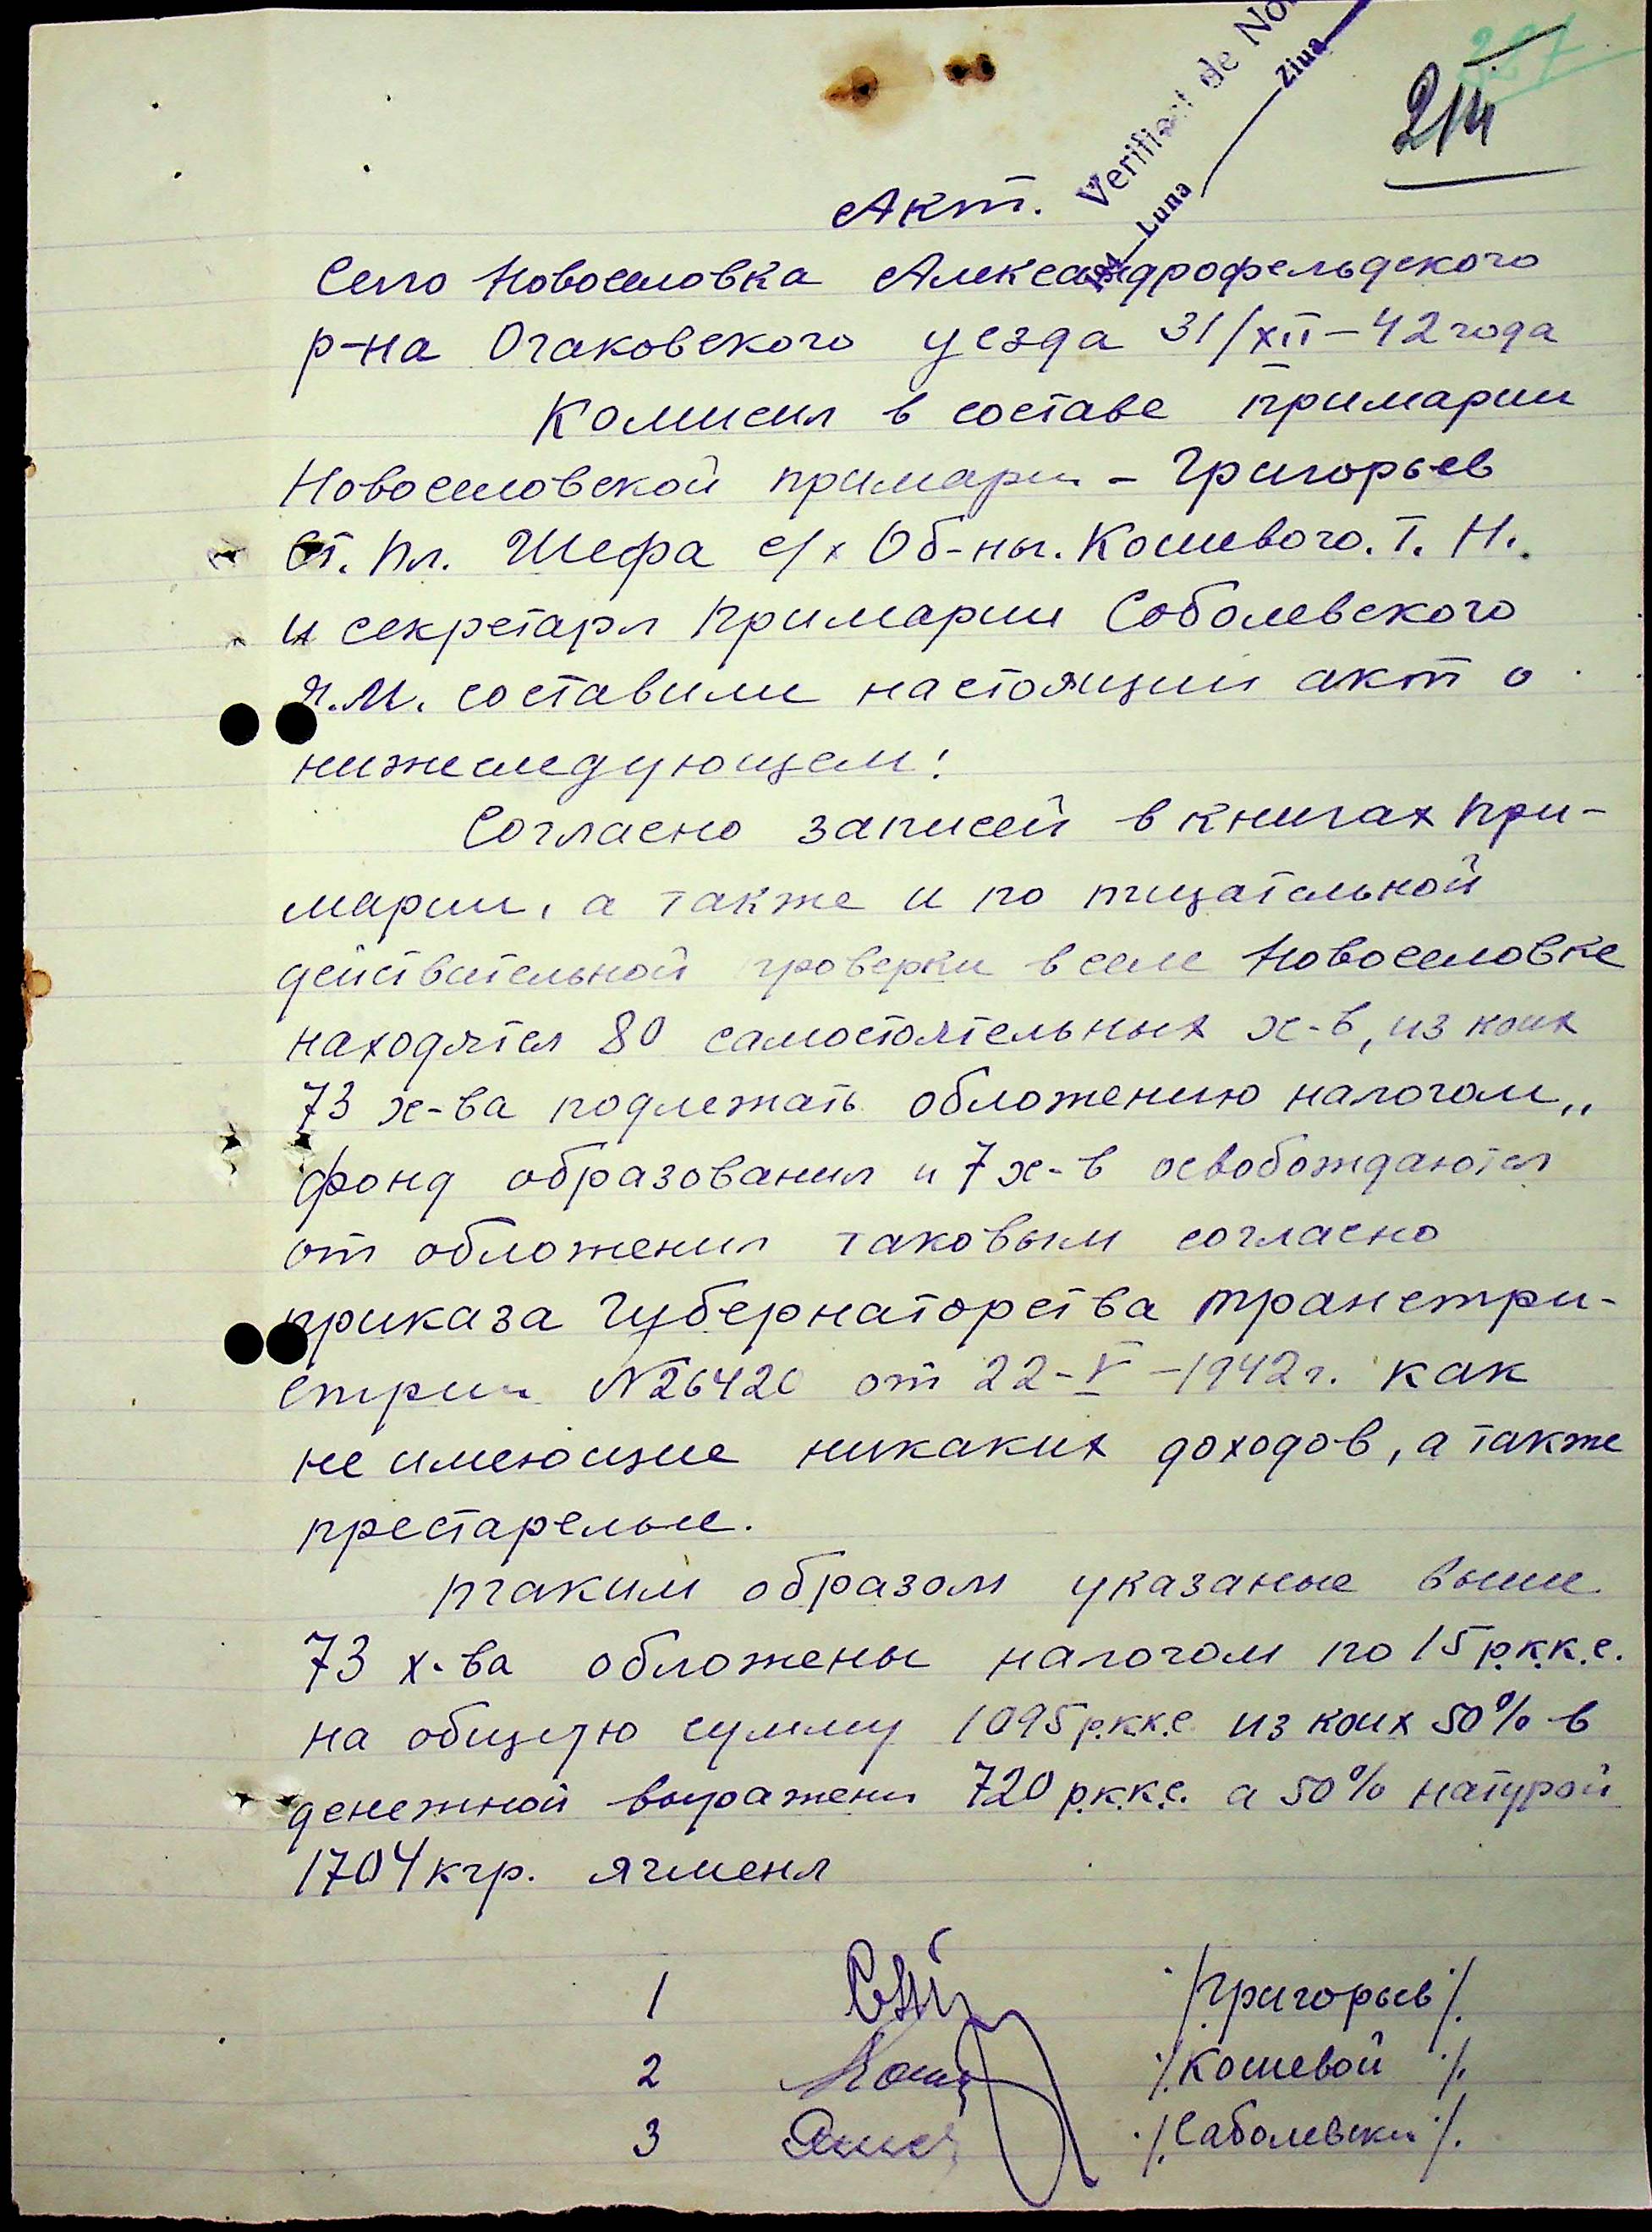 227
214
Verificat de No
194 Luna Ziua
Акт.
Село Новоселовка Александрофельдского
р-на Очаковского уезда 31/XII-42 года
Комисия в составе примарии
Новоселовской примари - Григорьев
Ст. Пл. Шефа с/х Об-ны. Кошевого. Т. Н.
и секретаря примарии Соболевского
Я.М. составили настоящии акт о
нижеследующем:
Согласно записей в книгах при-
марии, а также и по тщательной
действательной проверки в селе Новоселовке
находятся 80 самостоятельных х-в, из коих
73 х-ва подлежать обложению налогом „
фонд образования и 7 х-в освобождаются
от обложения таковым согласно
приказа Губернаторства транстри-
стрии №26420 от 22-V-1942 г. как
не имеющие никаких доходов, а также
престарелые.
Таким образом указаные выше
73 х-ва обложены налогом по 15 р.к.к.с.
на общую сумму 1095 р.к.к.с из коих 50% в
денежной выражени 720 р.к.к.с. а 50% натурой
1704 кгр. ячменя
1 /Григорьев/.
2 Кош /Кошевой/.
3 /Саболевски/.